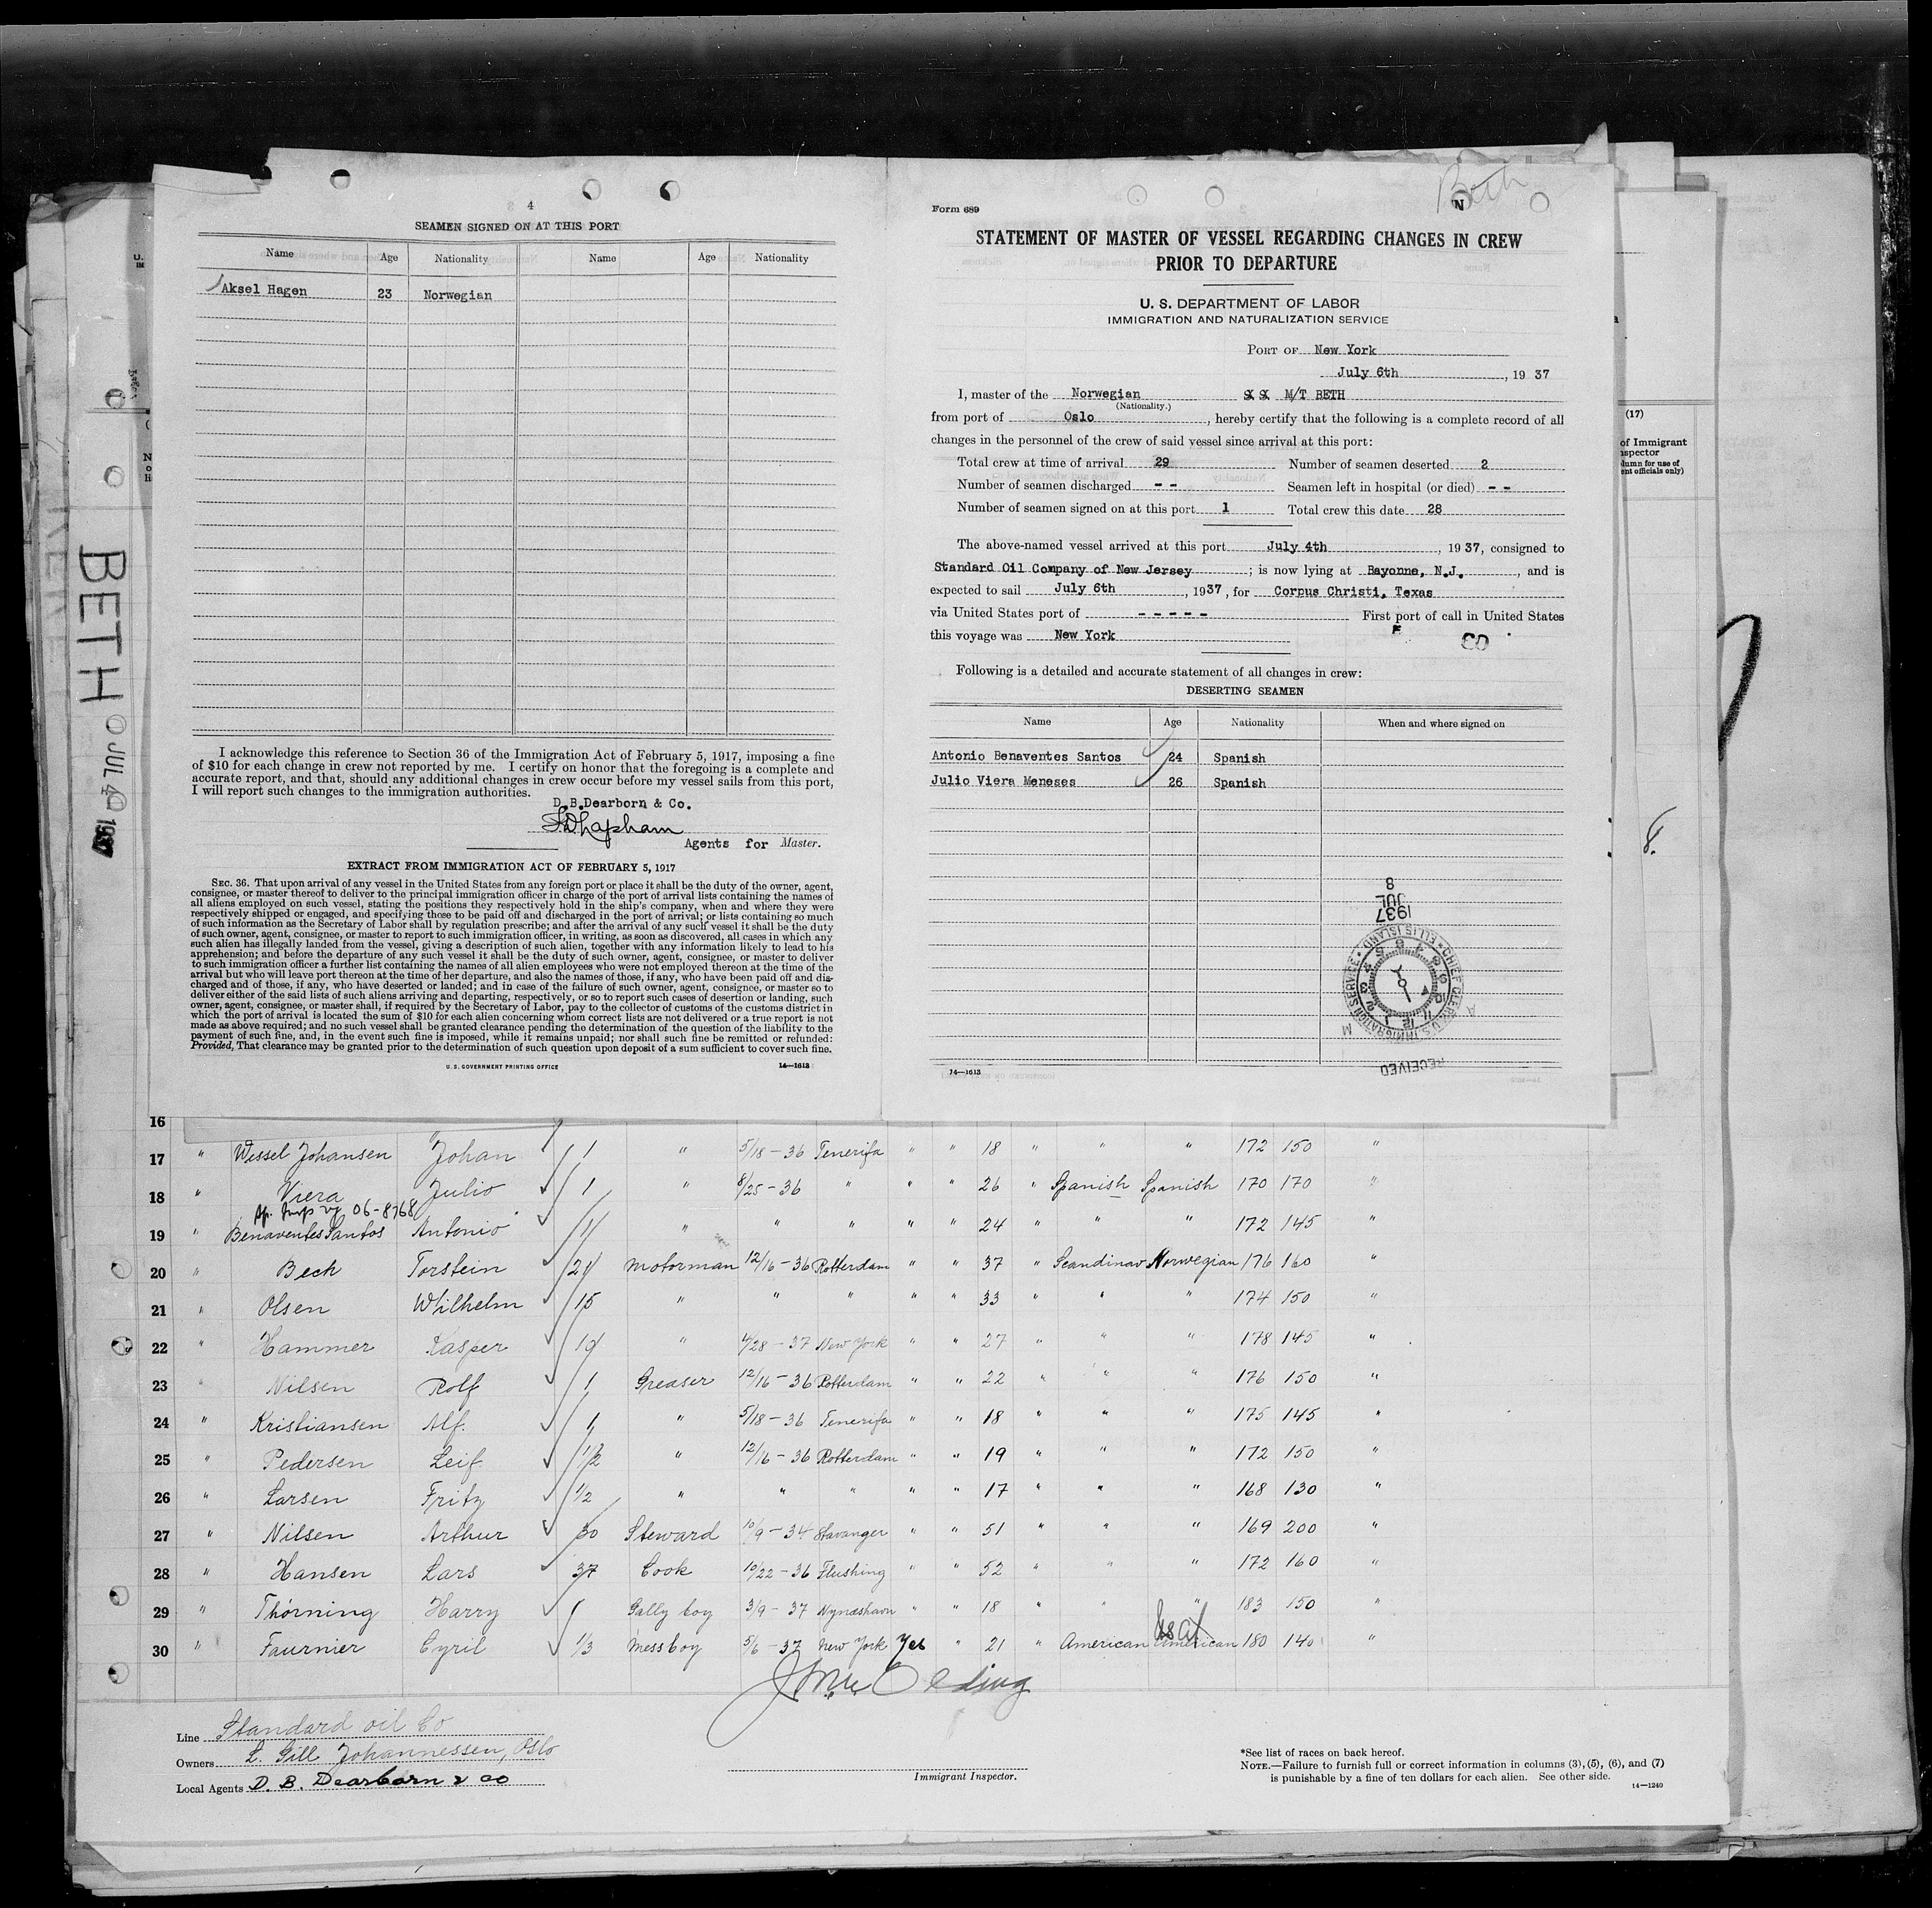 4
SEAMEN SIGNED ON AT THIS PORT
Name Age Nationality Name Age Nationality
Aksel Hagen 23 Norwegian
I acknowledge this reference to Section 36 of the Immigration Act of February 5, 1917, imposing a fine
of $10 for each change in crew not reported by me. I certify on honor that the foregoing is a complete and
accurate report, and that, should any additional changes in crew occur before my vessel sails from this port,
I will report such changes to the immigration authorities.
D.B.Dearborn & Co.
Agents for Master.
EXTRACT FROM IMMIGRATION ACT OF FEBRUARY 5, 1917
SEC. 36. That upon arrival of any vessel in the United States from any foreign port or place it shall be the duty of the owner, agent,
consignee, or master thereof to deliver to the principal immigration officer in charge of the port of arrival lists containing the names of
all aliens employed on such vessel, stating the positions they respectively hold in the ship's company, when and where they were
respectively shipped or engaged, and specifying those to be paid off and discharged in the port of arrival; or lists containing so much
of such information as the Secretary of Labor shall by regulation prescribe; and after the arrival of any such vessel it shall be the duty
of such owner, agent, consignee, or master to report to such immigration officer, in writing, as soon as discovered, all cases in which any
such alien has illegally landed from the vessel, giving a description of such alien, together with any information likely to lead to his
apprehension; and before the departure of any such vessel it shall be the duty of such owner, agent, consignee, or master to deliver
to such immigration officer a further list containing the names of all alien employees who were not employed thereon at the time of the
arrival but who will leave port thereon at the time of her departure, and also the names of those, if any, who have been paid off and dis-
charged and of those, if any, who have deserted or landed; and in case of the failure of such owner, agent, consignee, or master so to
deliver either of the said lists of such aliens arriving and departing, respectively, or so to report such cases of desertion or landing, such
owner, agent, consignee, or master shall, if required by the Secretary of Labor, pay to the collector of customs of the customs district in
which the port of arrival is located the sum of $10 for each alien concerning whom correct lists are not delivered or a true report is not
made as above required; and no such vessel shall be granted clearance pending the determination of the question of the liability to the
payment of such fine, and, in the event such fine is imposed, while it remains unpaid; nor shall such fine be remitted or refunded:
Provided, That clearance may be granted prior to the determination of such question upon deposit of a sum sufficient to cover such fine.
U. S. GOVERNMENT PRINTING OFFICE 14—1613
Beth
N
Form 689
STATEMENT OF MASTER OF VESSEL REGARDING CHANGES IN CREW
PRIOR TO DEPARTURE
U. S. DEPARTMENT OF LABOR
IMMIGRATION AND NATURALIZATION SERVICE
PORT OF New York
July 6th, 19 37
I, master of the Norwegian X X M/T BETH
(Nationality.)
from port of Oslo, hereby certify that the following is a complete record of all
changes in the personnel of the crew of said vessel since arrival at this port:
Total crew at time of arrival 29 Number of seamen deserted 2
Number of seamen discharged - - Seamen left in hospital (or died) - -
Number of seamen signed on at this port 1 Total crew this date 28
The above-named vessel arrived at this port July 4th, 19 37, consigned to
Standard Oil Company of New Jersey; is now lying at Bayonne, N.J., and is
expected to sail July 6th, 1937, for Corpus Christi, Texas
via United States port of - - - - - First port of call in United States
this voyage was New York
Following is a detailed and accurate statement of all changes in crew:
DESERTING SEAMEN
Name Age Nationality When and where signed on
Antonio Benaventes Santos 24 Spanish
Julio Viera Meneses 26 Spanish
8
JUL
1937
CHIEF CLERK U.S. IMMIGRATION SERVICE ELLIS ISLAND
RECEIVED
14—1613
(17)
of Immigrant
spector
lumn for use of
ent officials only)
BETH
JUL 1937
16
17 " Wessel Johansen Johan 1 " 5/18-36 Tenerifa " " 18 " " " 172 150 "
18 " Viera Julio 1 " 8/25-36 " " " 26 " Spanish Spanish 170 170 "
06-8768
19 " Benaventes Santos Antonio 1 " " " " " 24 " " " 172 145 "
20 " Beck Torstein 21 Motorman 12/16-36 Rotterdam " " 37 " Scandinav Norwegian 176 160 "
21 " Olsen Wilhelm 15 " " " " " 33 " " " 174 150 "
22 " Hammer Kasper 10 " 4/28-37 New York " " 27 " " " 178 145 "
23 " Nilsen Rolf 1 Greaser 12/16-36 Rotterdam " " 22 " " " 176 150 "
24 " Kristiansen Alf. 1 " 5/18-36 Tenerifa " " 18 " " " 175 145 "
25 " Pedersen Leif 1/2 " 12/16-36 Rotterdam " " 19 " " " 172 150 "
26 " Larsen Fritz 1/2 " " " " " 17 " " " 168 130 "
27 " Nilsen Arthur 30 Steward 10/9-34 Stavanger " " 51 " " " 169 200 "
28 " Hansen Lars 37 Cook 10/22-36 Flushing " " 52 " " " 172 160 "
29 " Thorning Harry 1 Gally boy 3/9-37 Nynæshavn " " 18 " " " 183 150 "
30 " Faurnier Cyril 1/3 Messboy 5/6-37 New York Yes " 21 " American American 180 140 "
Line Standard oil Co
Owners L. Gill Johannessen, Oslo
Local Agents D. B. Dearborn & Co
Immigrant Inspector.
*See list of races on back hereof.
NOTE.—Failure to furnish full or correct information in columns (3), (5), (6), and (7)
is punishable by a fine of ten dollars for each alien. See other side.
14—1240